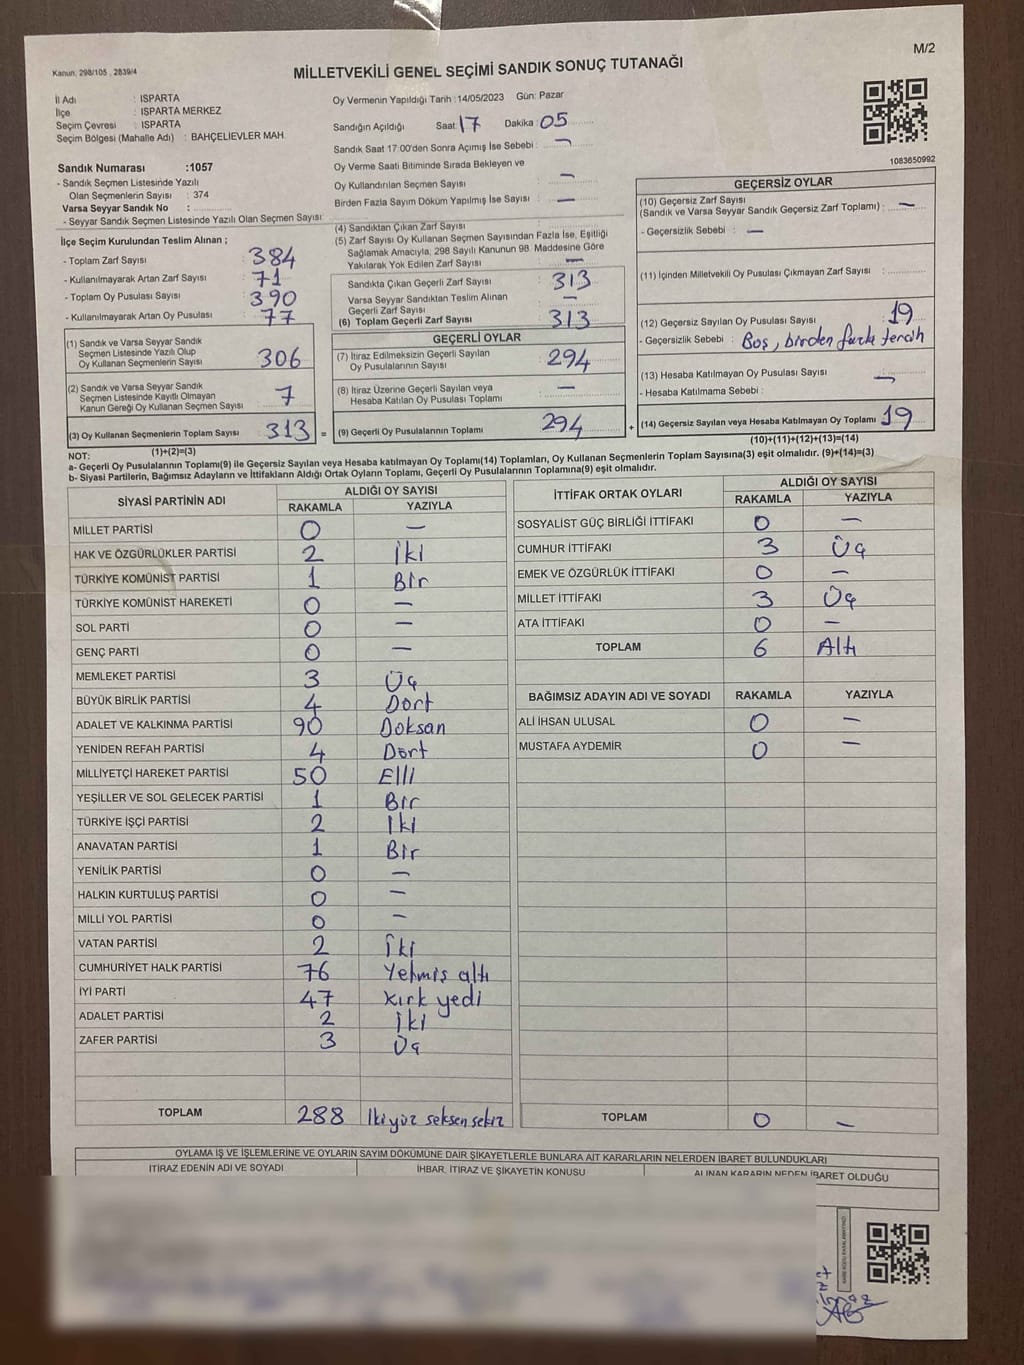 M/2
Kanun: 298/105 , 2839/4
MİLLETVEKİLİ GENEL SEÇİMİ SANDIK SONUÇ TUTANAĞI
İl Adı : ISPARTA
İlçe : ISPARTA MERKEZ
Seçim Çevresi : ISPARTA
Seçim Bölgesi (Mahalle Adı) : BAHÇELİEVLER MAH.
Sandık Numarası :1057
- Sandık Seçmen Listesinde Yazılı
Olan Seçmenlerin Sayısı : 374
Varsa Seyyar Sandık No :
- Seyyar Sandık Seçmen Listesinde Yazılı Olan Seçmen Sayısı:
Oy Vermenin Yapıldığı Tarih :14/05/2023 Gün: Pazar
Sandığın Açıldığı Saat: 17 Dakika: 05
Sandık Saat 17:00'den Sonra Açımış İse Sebebi : —
Oy Verme Saati Bitiminde Sırada Bekleyen ve
Oy Kullandırılan Seçmen Sayısı —
Birden Fazla Sayım Döküm Yapılmış İse Sayısı —
1083650992
İlçe Seçim Kurulundan Teslim Alınan ;
- Toplam Zarf Sayısı : 384
- Kullanılmayarak Artan Zarf Sayısı : 71
- Toplam Oy Pusulası Sayısı : 390
- Kullanılmayarak Artan Oy Pusulası : 77
(1) Sandık ve Varsa Seyyar Sandık
Seçmen Listesinde Yazılı Olup
Oy Kullanan Seçmenlerin Sayısı 306
(2) Sandık ve Varsa Seyyar Sandık
Seçmen Listesinde Kayıtlı Olmayan
Kanun Gereği Oy Kullanan Seçmen Sayısı 7
(3) Oy Kullanan Seçmenlerin Toplam Sayısı 313 =
(1)+(2)=(3)
(4) Sandıktan Çıkan Zarf Sayısı
(5) Zarf Sayısı Oy Kullanan Seçmen Sayısından Fazla İse, Eşitliği
Sağlamak Amacıyla, 298 Sayılı Kanunun 98. Maddesine Göre
Yakılarak Yok Edilen Zarf Sayısı —
Sandıkta Çıkan Geçerli Zarf Sayısı 313
Varsa Seyyar Sandıktan Teslim Alınan
Geçerli Zarf Sayısı —
(6) Toplam Geçerli Zarf Sayısı 313
GEÇERLİ OYLAR
(7) İtiraz Edilmeksizin Geçerli Sayılan
Oy Pusulalarının Sayısı 294
(8) İtiraz Üzerine Geçerli Sayılan veya
Hesaba Katılan Oy Pusulası Toplamı —
(9) Geçerli Oy Pusulalarının Toplamı 294 +
GEÇERSİZ OYLAR
(10) Geçersiz Zarf Sayısı
(Sandık ve Varsa Seyyar Sandık Geçersiz Zarf Toplamı) : —
- Geçersizlik Sebebi : —
(11) İçinden Milletvekili Oy Pusulası Çıkmayan Zarf Sayısı :
(12) Geçersiz Sayılan Oy Pusulası Sayısı : 19
- Geçersizlik Sebebi : Boş, birden fazla tercih
(13) Hesaba Katılmayan Oy Pusulası Sayısı : —
- Hesaba Katılmama Sebebi :
(14) Geçersiz Sayılan veya Hesaba Katılmayan Oy Toplamı 19
(10)+(11)+(12)+(13)=(14)
NOT:
a- Geçerli Oy Pusulalarının Toplamı(9) ile Geçersiz Sayılan veya Hesaba katılmayan Oy Toplamı(14) Toplamları, Oy Kullanan Seçmenlerin Toplam Sayısına(3) eşit olmalıdır. (9)+(14)=(3)
b- Siyasi Partilerin, Bağımsız Adayların ve İttifakların Aldığı Ortak Oyların Toplamı, Geçerli Oy Pusulalarının Toplamına(9) eşit olmalıdır.
SİYASİ PARTİNİN ADI ALDIĞI OY SAYISI
RAKAMLA YAZIYLA
MİLLET PARTİSİ 0 —
HAK VE ÖZGÜRLÜKLER PARTİSİ 2 İki
TÜRKİYE KOMÜNİST PARTİSİ 1 Bir
TÜRKİYE KOMÜNİST HAREKETİ 0 —
SOL PARTİ 0 —
GENÇ PARTİ 0 —
MEMLEKET PARTİSİ 3 Üç
BÜYÜK BİRLİK PARTİSİ 4 Dört
ADALET VE KALKINMA PARTİSİ 90 Doksan
YENİDEN REFAH PARTİSİ 4 Dört
MİLLİYETÇİ HAREKET PARTİSİ 50 Elli
YEŞİLLER VE SOL GELECEK PARTİSİ 1 Bir
TÜRKİYE İŞÇİ PARTİSİ 2 İki
ANAVATAN PARTİSİ 1 Bir
YENİLİK PARTİSİ 0 —
HALKIN KURTULUŞ PARTİSİ 0 —
MİLLİ YOL PARTİSİ 0 —
VATAN PARTİSİ 2 İki
CUMHURİYET HALK PARTİSİ 76 Yetmiş altı
İYİ PARTİ 47 Kırk yedi
ADALET PARTİSİ 2 İki
ZAFER PARTİSİ 3 Üç
TOPLAM 288 İkiyüz seksen sekiz
İTTİFAK ORTAK OYLARI ALDIĞI OY SAYISI
RAKAMLA YAZIYLA
SOSYALİST GÜÇ BİRLİĞİ İTTİFAKI 0 —
CUMHUR İTTİFAKI 3 Üç
EMEK VE ÖZGÜRLÜK İTTİFAKI 0 —
MİLLET İTTİFAKI 3 Üç
ATA İTTİFAKI 0 —
TOPLAM 6 Altı
BAĞIMSIZ ADAYIN ADI VE SOYADI RAKAMLA YAZIYLA
ALİ İHSAN ULUSAL 0 —
MUSTAFA AYDEMİR 0 —
TOPLAM 0 —
OYLAMA İŞ VE İŞLEMLERİNE VE OYLARIN SAYIM DÖKÜMÜNE DAİR ŞİKAYETLERLE BUNLARA AİT KARARLARIN NELERDEN İBARET BULUNDUKLARI
İTİRAZ EDENİN ADI VE SOYADI İHBAR, İTİRAZ VE ŞİKAYETİN KONUSU ALINAN KARARIN NEDEN İBARET OLDUĞU